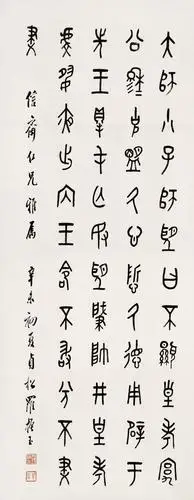 大師小子師望曰不顯皇考
公穆克盟氒心悊氒德用辟于
先王㝵屯亡敃望肇帥井皇考
虔夙夜出內王命不敢分不妻
信齋仁兄雅屬
辛未初夏貞松羅振玉